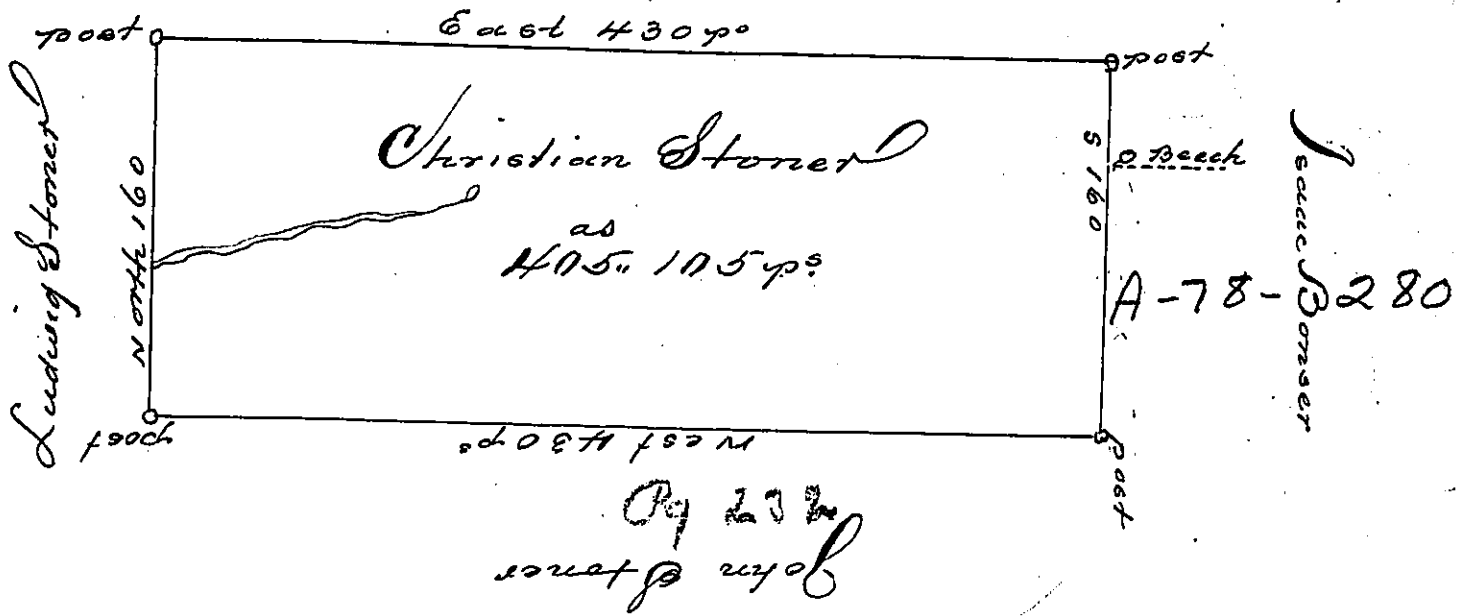 East 430 ps
post
post
Ludwig Stoner
North 160
Christian Stoner
as
405" 105 ps
S 160
Beech
Isaac Bonser
A-78-280
post
West 430 ps
post
Pg 232
John Stoner